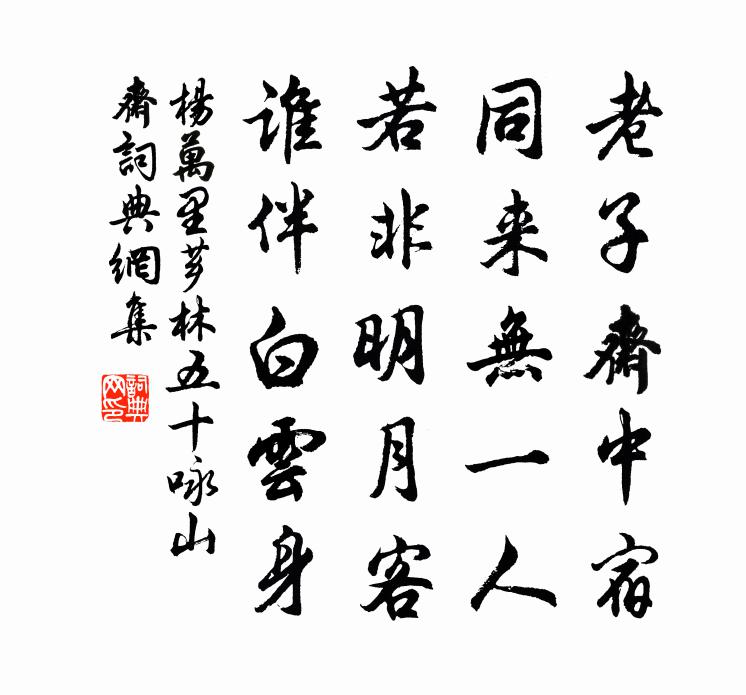 老子齋中宿
同来無一人
若非明月客
誰伴白雲身
楊萬里芗林五十咏山
齋詞典網集
詞典
网印